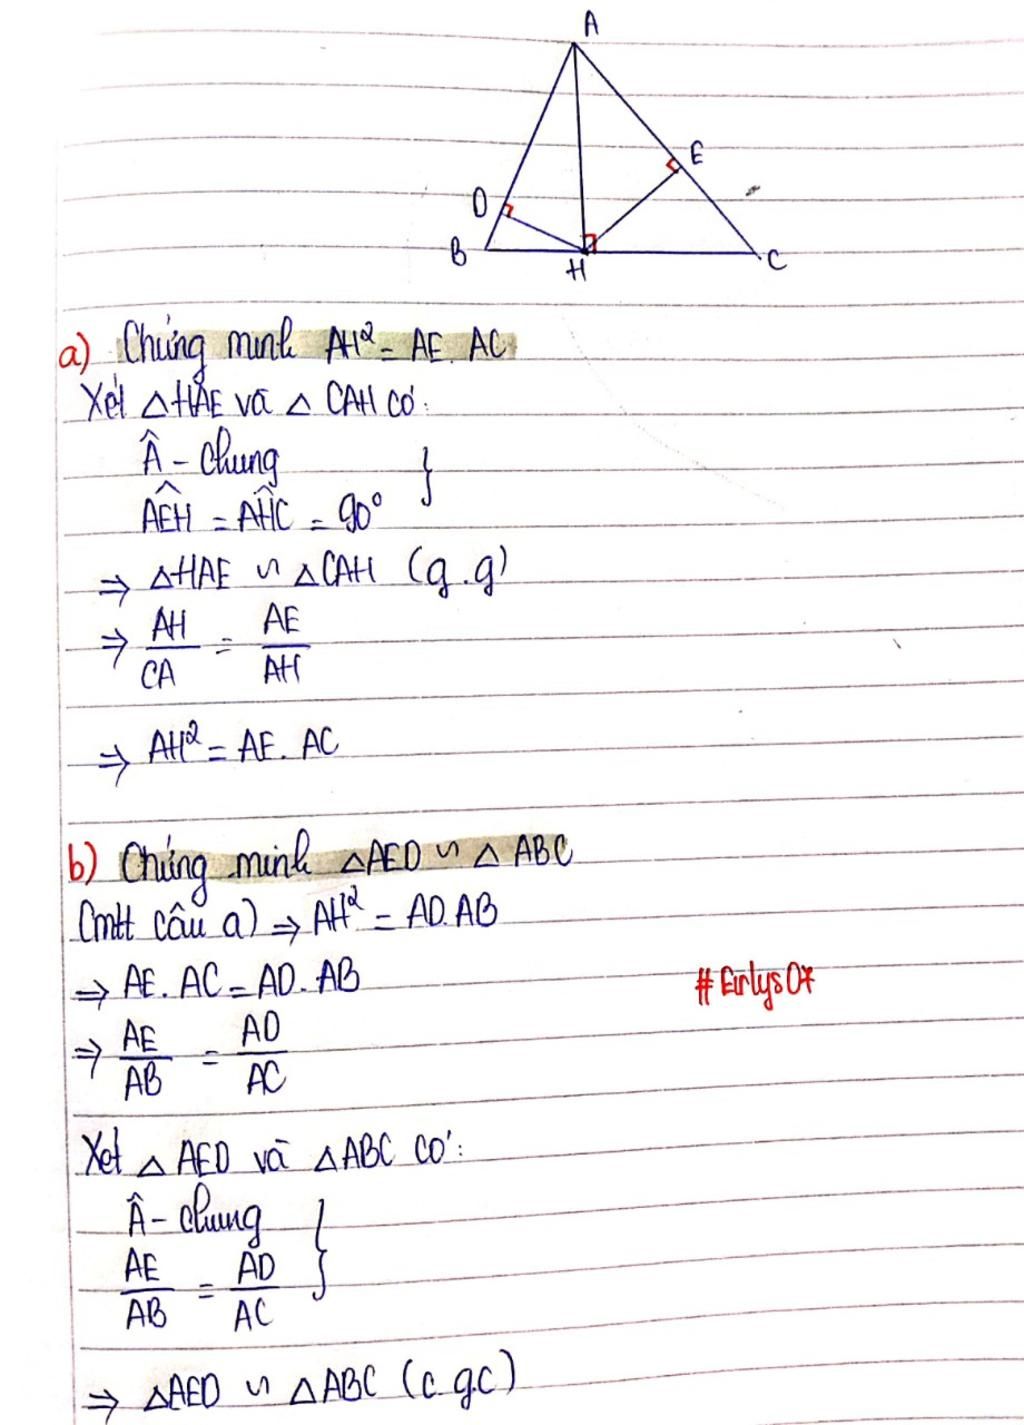 A
E
D
B
H
C
a) Chứng minh AH² = AE. AC
Xét △HAE và △ CAH có:
Â - chung }
AÊH = AĤC = 90°
⇒ △HAE ∽ △CAH (g.g)
⇒ AH/CA = AE/AH
⇒ AH² = AE. AC
b) Chứng minh △AED ∽ △ ABC
Cmtt câu a) ⇒ AH² = AD.AB
⇒ AE. AC = AD. AB
#Eirlys07
⇒ AE/AB = AD/AC
Xét △ AED và △ABC có:
Â - chung }
AE/AB = AD/AC
⇒ △AED ∽ △ABC (c.g.c)